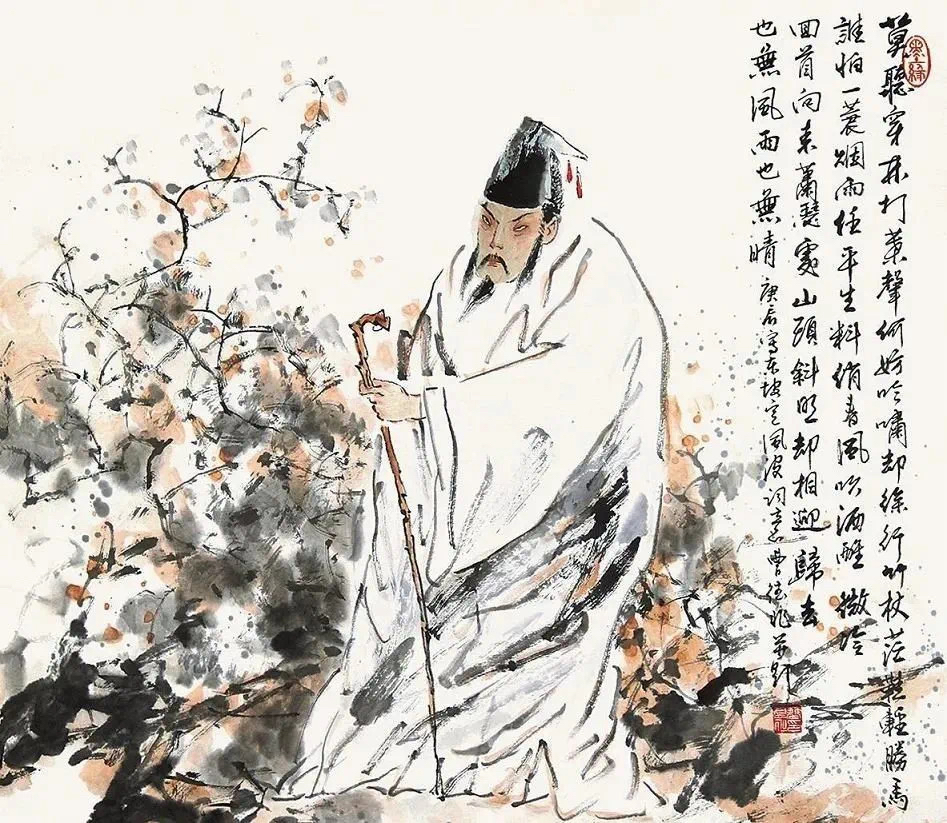 墨緣
莫聽穿林打葉聲何妨吟嘯却徐行竹杖芒鞋輕勝馬
誰怕一蓑烟雨任平生料峭春風吹酒醒微冷
回首向来蕭瑟處山頭斜照却相迎歸去
也無風雨也無晴 庚辰寫東坡定風波詞意曹